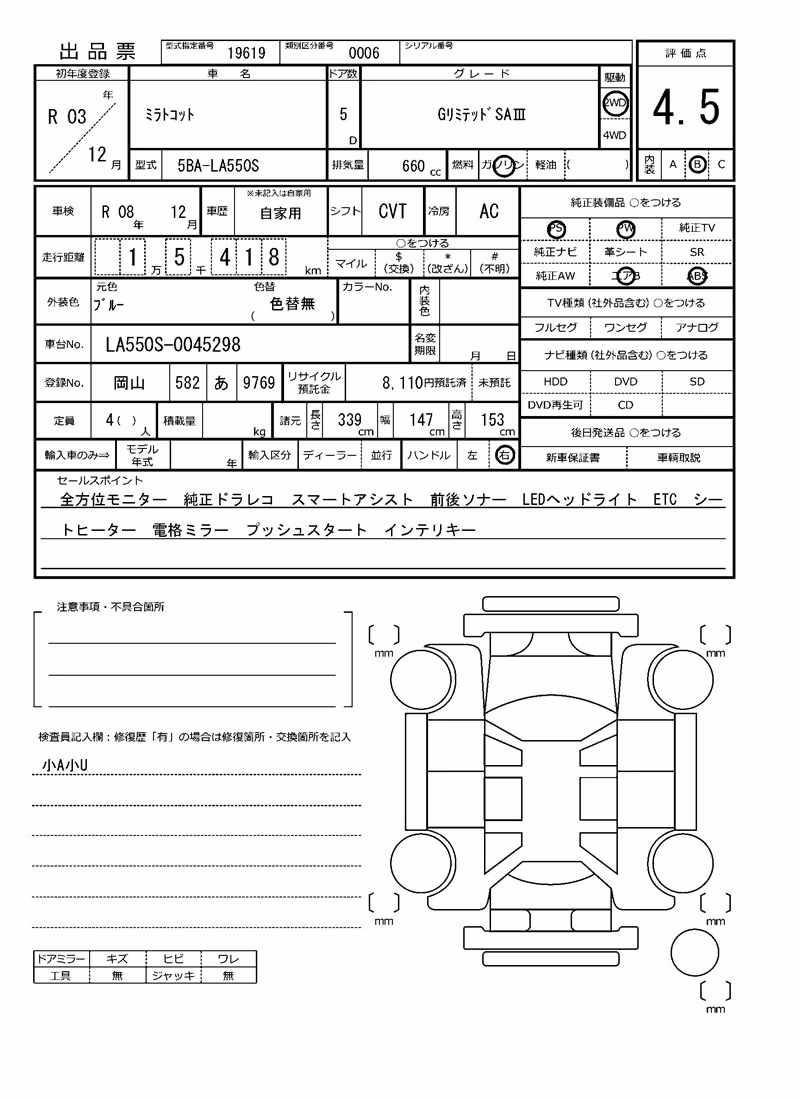 出品票 型式指定番号 19619 類別区分番号 0006 シリアル番号
評価点
4.5
内装 A B C
初年度登録 車名 ドア数 グレード 駆動
R 03 年 12 月
ミラトコット 5 D GリミテッドSAⅢ 2WD
4WD
型式 5BA-LA550S 排気量 660 cc 燃料 ガソリン 軽油 ( )
車検 R 08 年 12 月 車歴 ※未記入は自家用 自家用 シフト CVT 冷房 AC
走行距離 1 万 5 千 4 1 8 km
○をつける
マイル $ (交換) * (改ざん) # (不明)
外装色 元色 ブルー 色替 ( 色替無 ) カラーNo. 内装色
車台No. LA550S-0045298 名変期限 月 日
登録No. 岡山 582 あ 9769 リサイクル預託金 8,110円預託済 未預託
定員 4 ( ) 人 積載量 kg 諸元 長さ 339 cm 幅 147 cm 高さ 153 cm
輸入車のみ⇒ モデル年式 年 輸入区分 ディーラー 並行 ハンドル 左 右
純正装備品 ○をつける
PS PW 純正TV
純正ナビ 革シート SR
純正AW エアB ABS
TV種類(社外品含む)○をつける
フルセグ ワンセグ アナログ
ナビ種類(社外品含む)○をつける
HDD DVD SD
DVD再生可 CD
後日発送品 ○をつける
新車保証書 車輌取説
セールスポイント
全方位モニター 純正ドラレコ スマートアシスト 前後ソナー LEDヘッドライト ETC シー
トヒーター 電格ミラー プッシュスタート インテリキー
注意事項・不具合箇所
検査員記入欄：修復歴「有」の場合は修復箇所・交換箇所を記入
小A小U
ドアミラー キズ ヒビ ワレ
工具 無 ジャッキ 無
mm
mm
mm
mm
mm